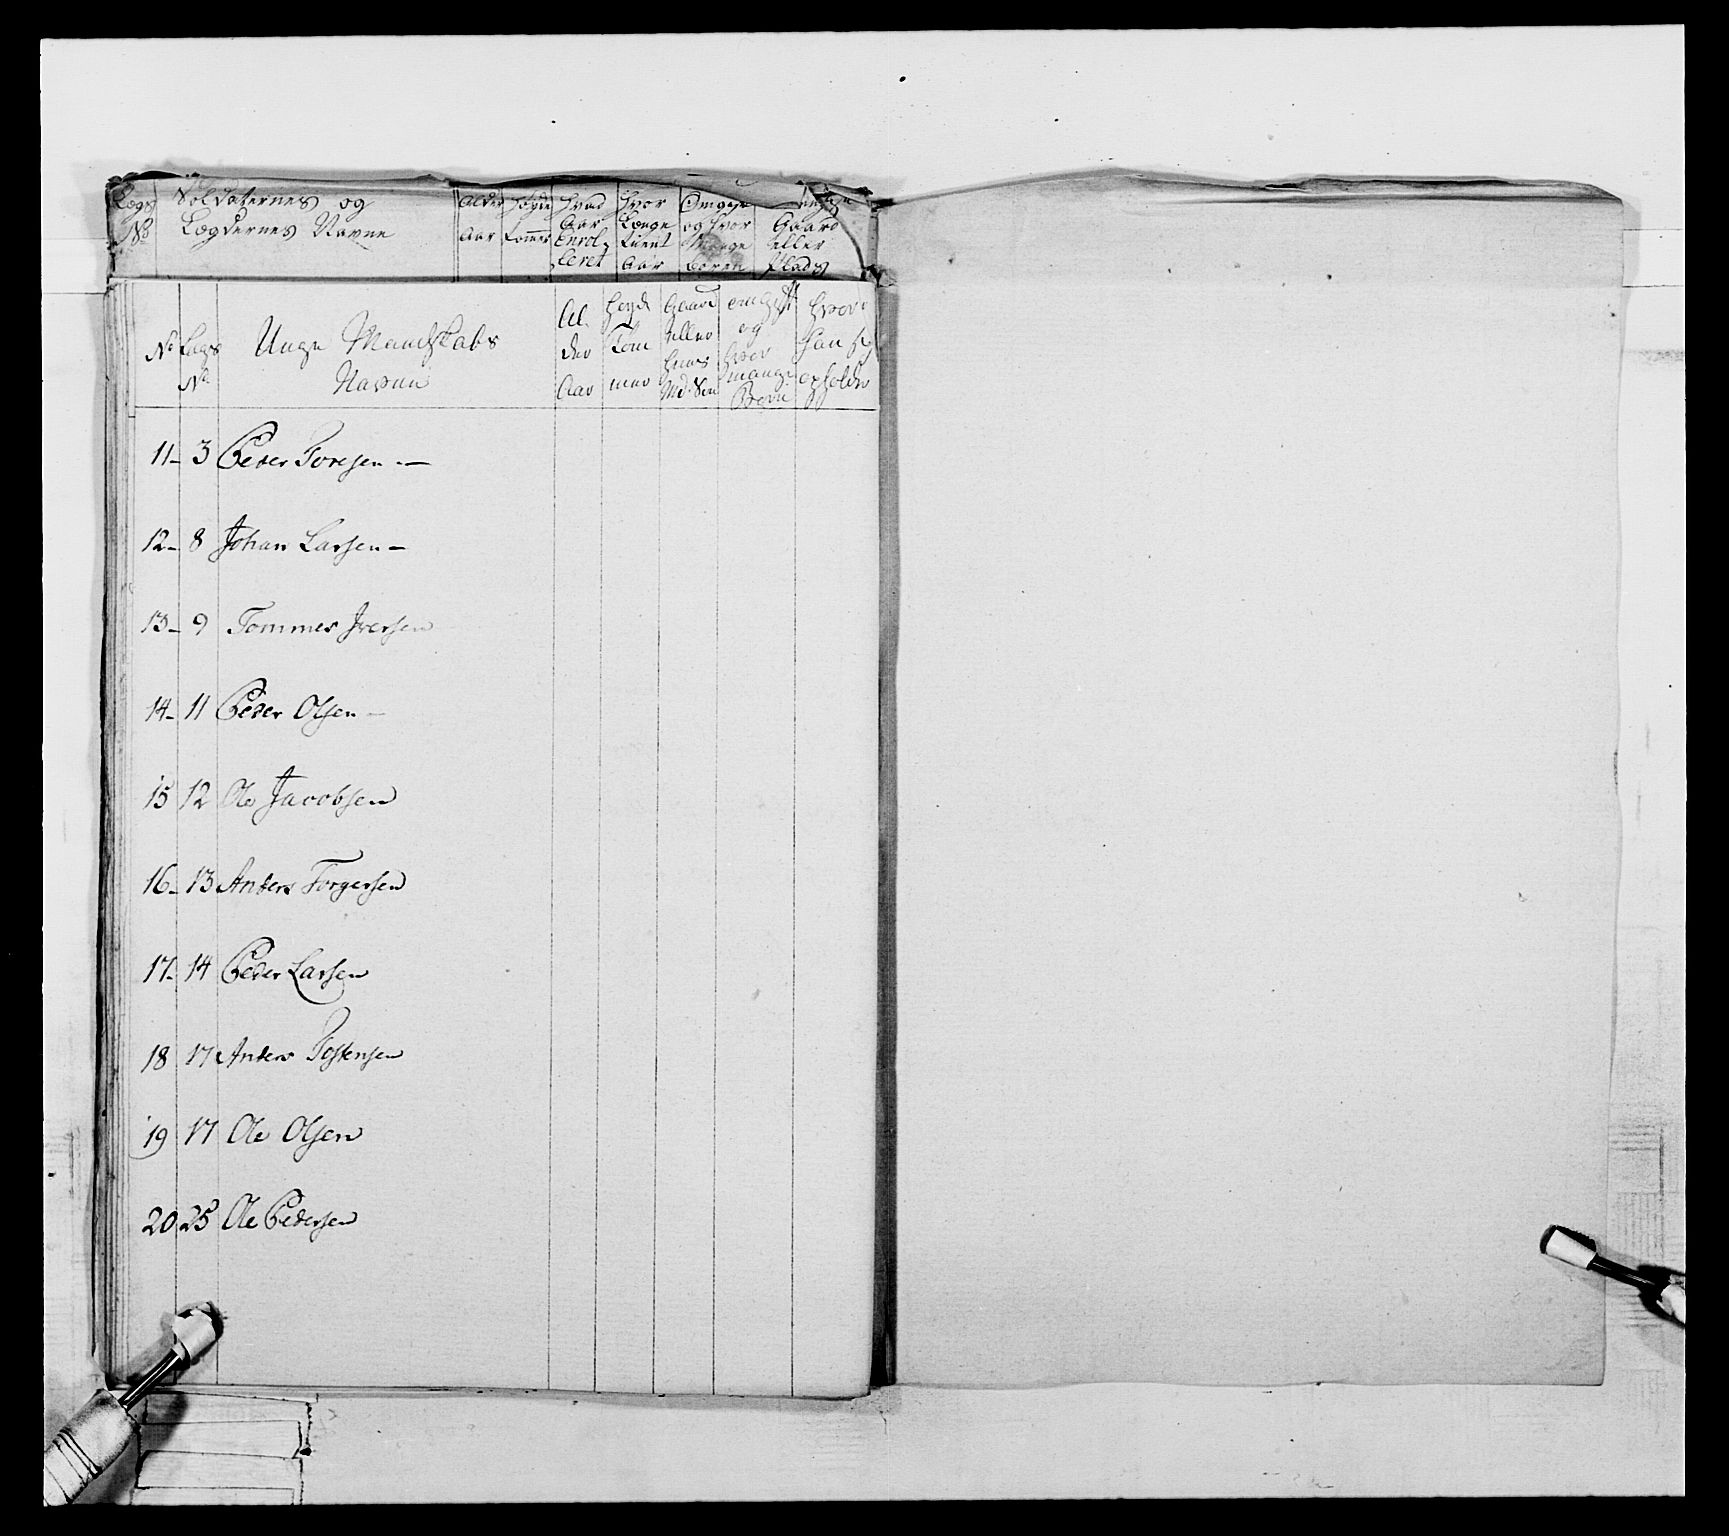 Lægs No Soldaternes og Lægdernes Navne Alder Aar Høyde Tommer Hvad Aar Enrolleret Hvor Længe tient Aar og hvor Mange Børen Gaard eller Plads
No Lægs No Unge Mandskabs Navne Alder Aar Høyde Tommer Gaard eller og hvor mange Børn Hvor han sig opholder
11- 3 Peder Toresen -
12- 8 Johan Larsen -
13- 9 Tommes Iversen
14- 11 Peder Olsen -
15 12 Ole Jacobsen
16- 13 Anders Torgersen
17- 14 Peder Larsen
18 17 Anders Tostensen
19 17 Ole Olsen
20 25 Ole Pedersen